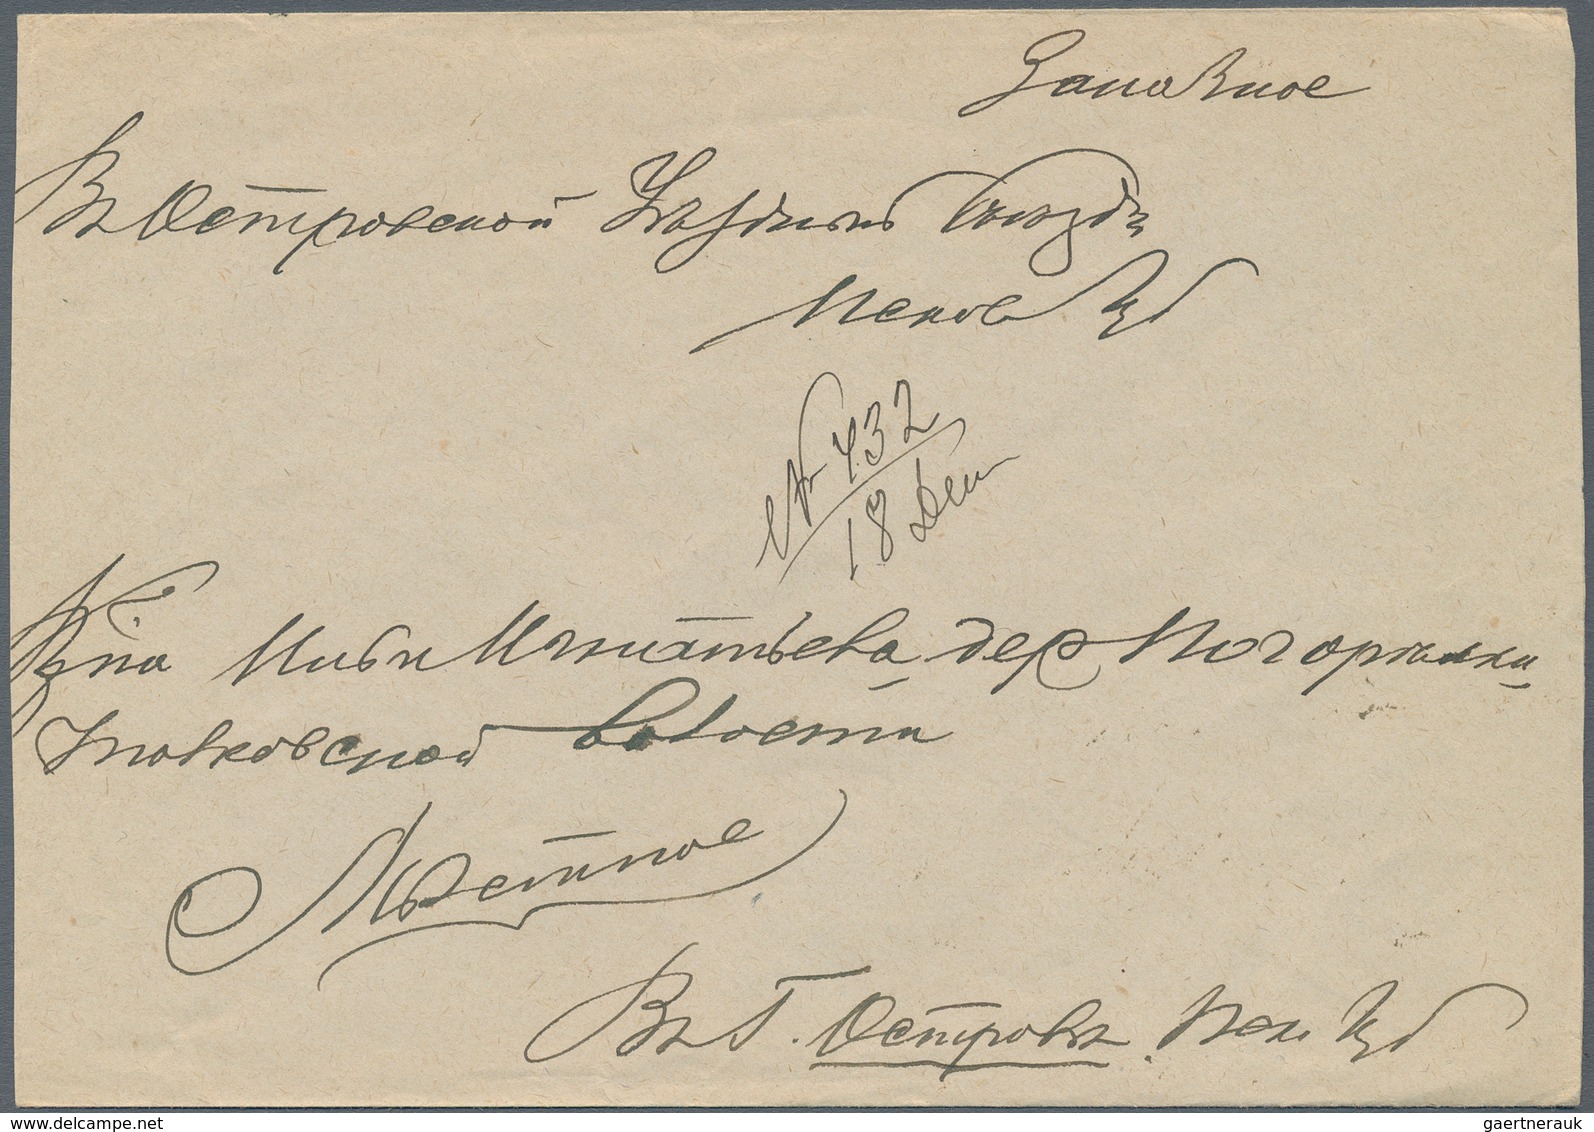 Заказное
Въ Островской Уѣздный Съѣздъ
Псков Губ
№ 432
18 Дек
Кр на Ильи Игнатьева дер Погорѣлки
волости
Мѣстное
Въ Г. Островъ Пск Губ
www.delcampe.net
gaertnerauk